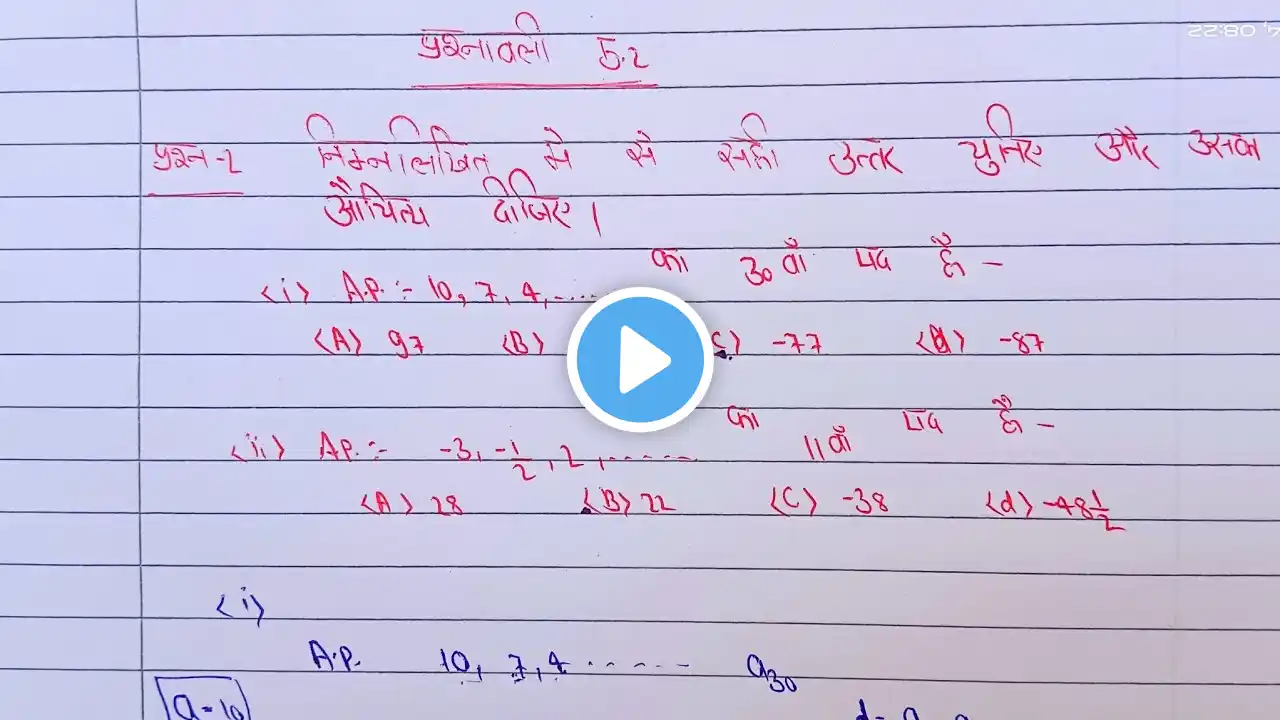 प्रश्नावली 5.2
प्रश्न-2 निम्नलिखित मे से सही उत्तर चुनिए और उसका
औचित्य दीजिए।
(i) A.P. :- 10, 7, 4, ..... का 30 वाँ पद है -
(A) 97 (B) (C) -77 (d) -87
(ii) A.P. :- -3, -1/2, 2, ....... का 11वाँ पद है -
(A) 28 (B) 22 (C) -38 (d) -48 1/2
(i)
A.P. 10, 7, 4 ....... a30
a=10